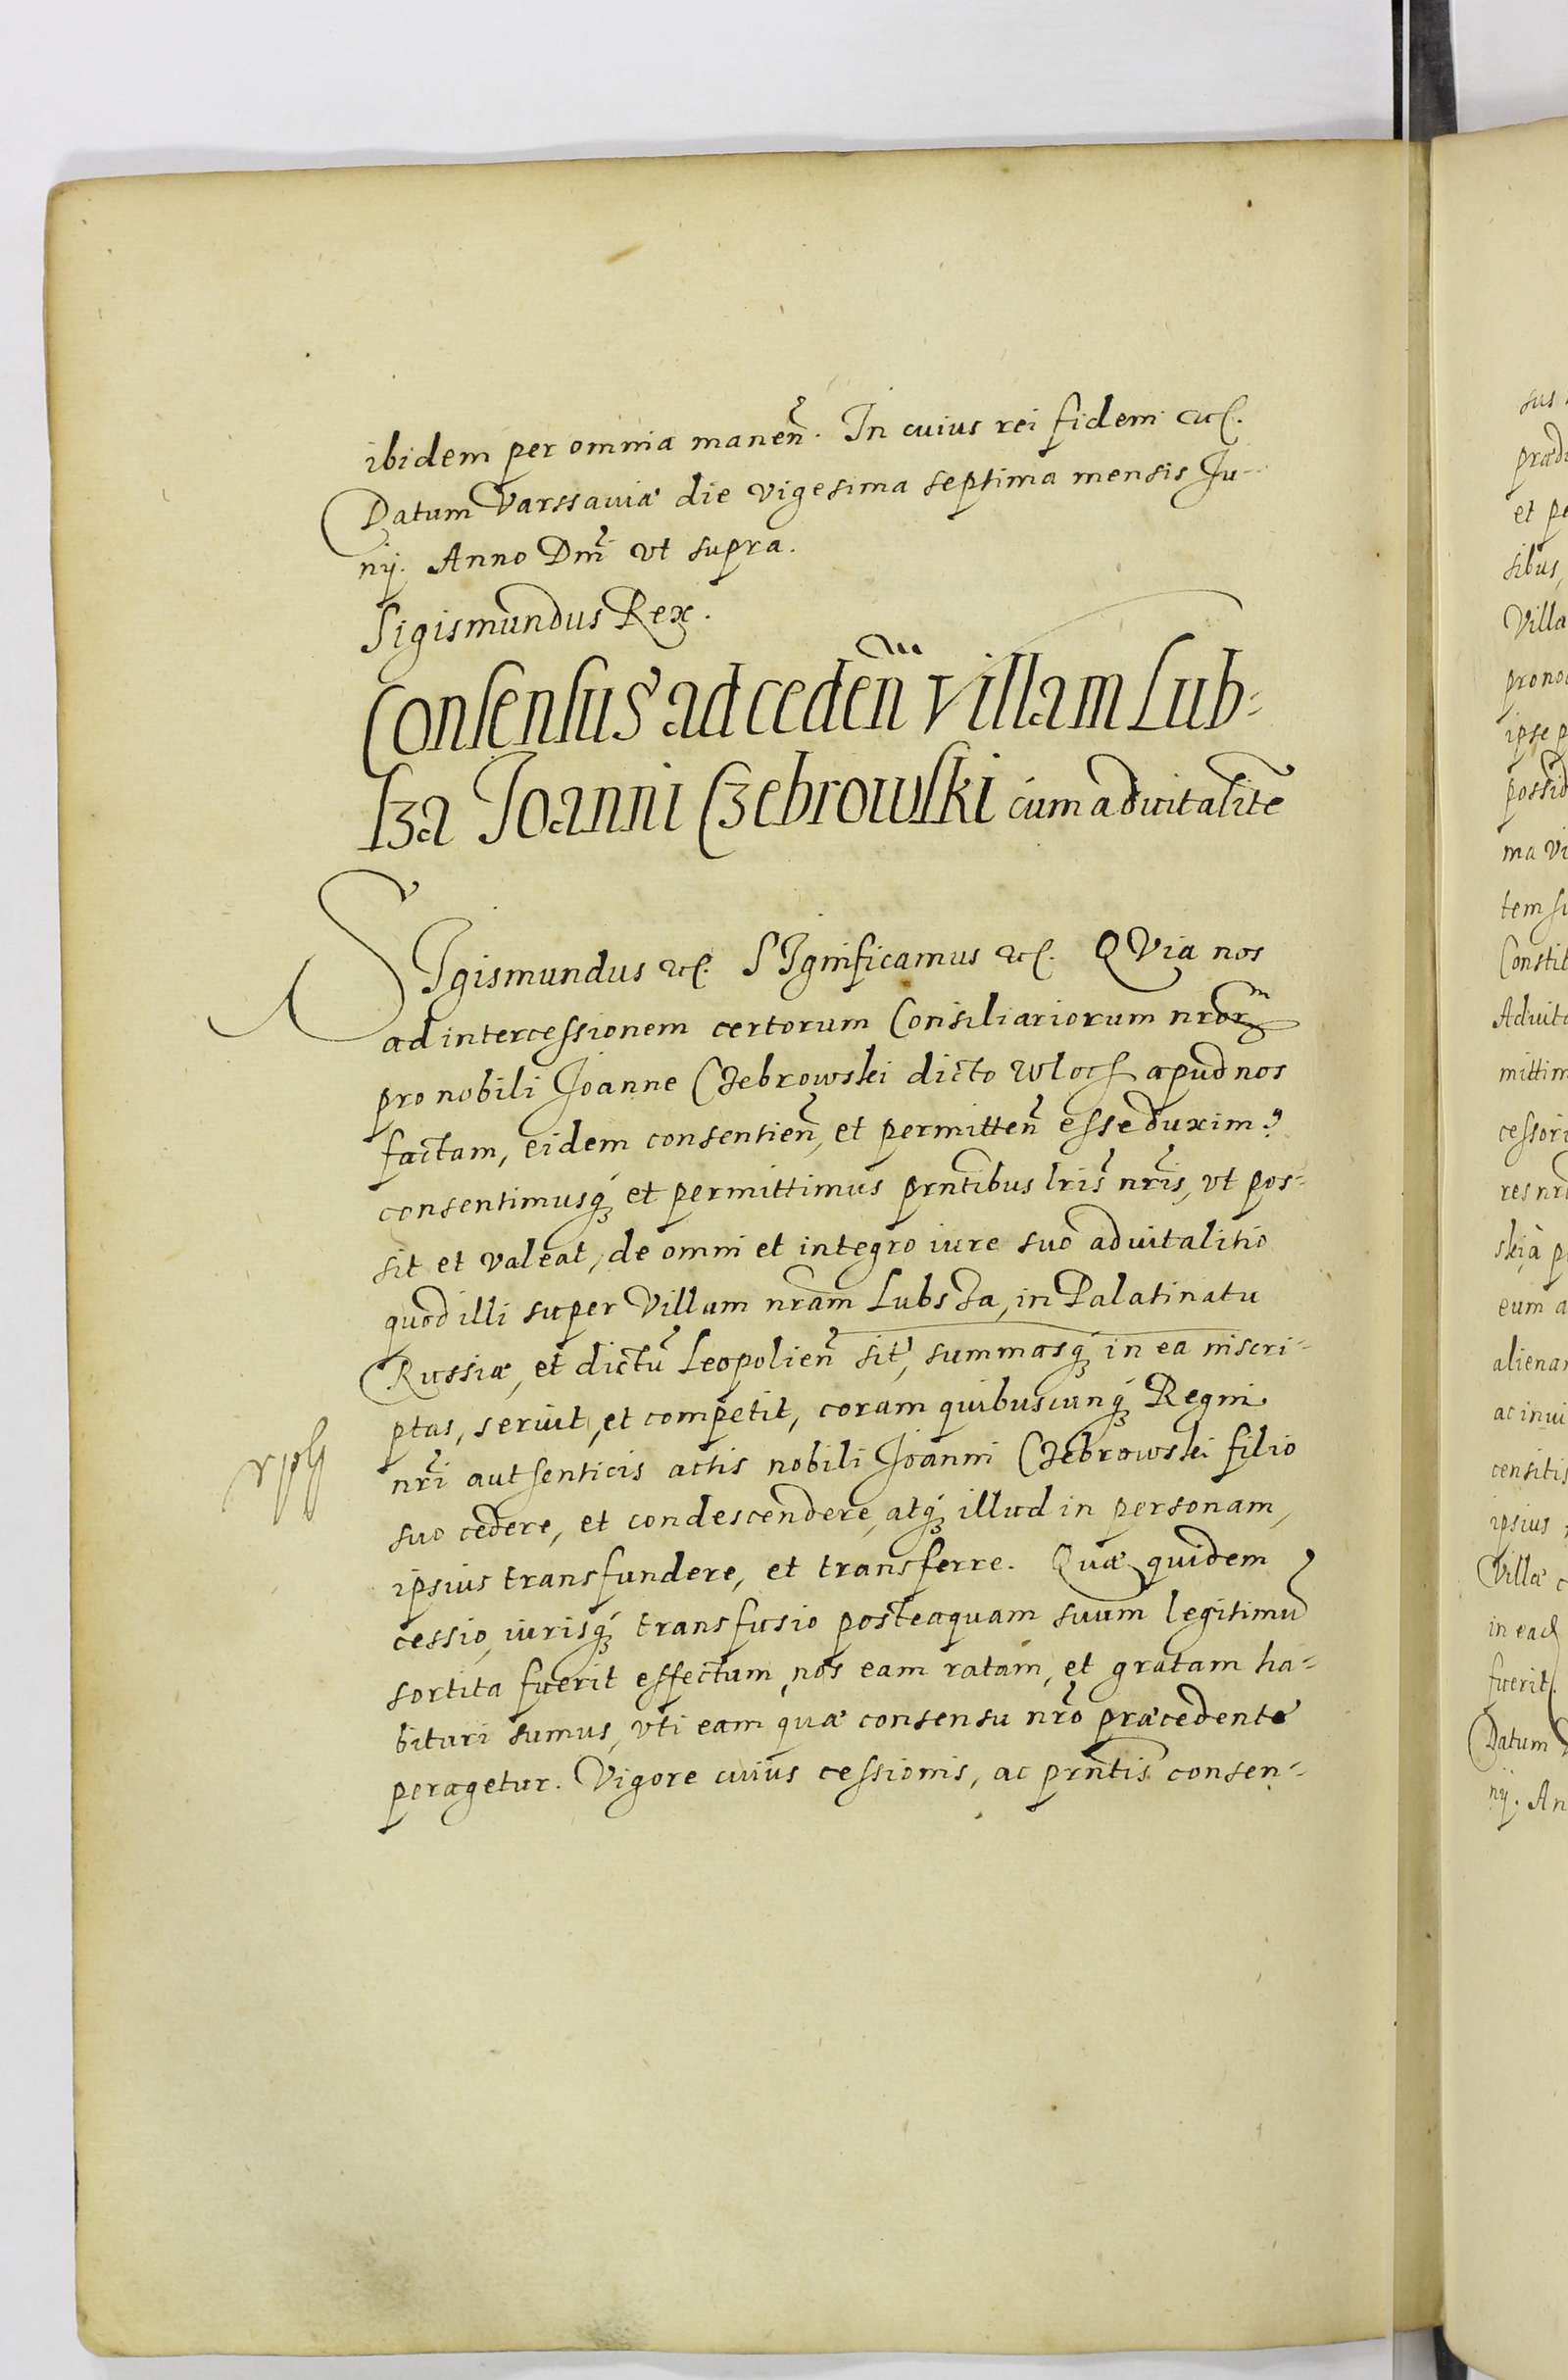 ibidem per omnia manen̄. In cuius rei fidem etc.
Datum Varssaviæ die vigesima septima mensis Ju-
nij. Anno Dnī vt supra.
Sigismundus Rex.
Consensus ad ceden̄ villam Lub-
sza Joanni Czebrowski cum aduitalite
SIgismundus etc. SIgnificamus etc. QVia nos
ad intercessionem certorum Consiliariorum nror̄
pro nobili Joanne Czebrowski dicto Wloch apud nos
factam, eidem consentien̄, et permitten̄ esse duxim9
consentimusq3 et permittimus prn̄tibus lrīs nrīs, vt pos-
sit et valeat, de omni et integro iure suo aduitalitio
quod illi super Villam nrām Lubsza, in Palatinatu
Russiæ, et dictū Leopolien̄ sit, summasq3 in ea inscri-
ptas, seruit, et competit, coram quibuscunq3 Regni
nrī authenticis actis nobili Joanni Czebrowski filio
suo cedere, et condescendere, atq3 illud in personam
ipsius transfundere, et transferre. Quæ quidem
cessio, iurisq3 transfusio posteaquam suum legitimū
sortita fuerit effectum, nos eam ratam, et gratam ha-
bituri sumus, vti eam quæ consensu nrō præcedente
peragetur. Vigore cuius cessionis, ac prn̄tis consen-
sus
et pe
sibus,
Villa
prono
ipse p
possid
ma vi
Constit
Aduita
mittim
cessori
eum a
alienar
ac inui
censitis
ipsius
Villæ c
fuerit.
Datum V
nij. An